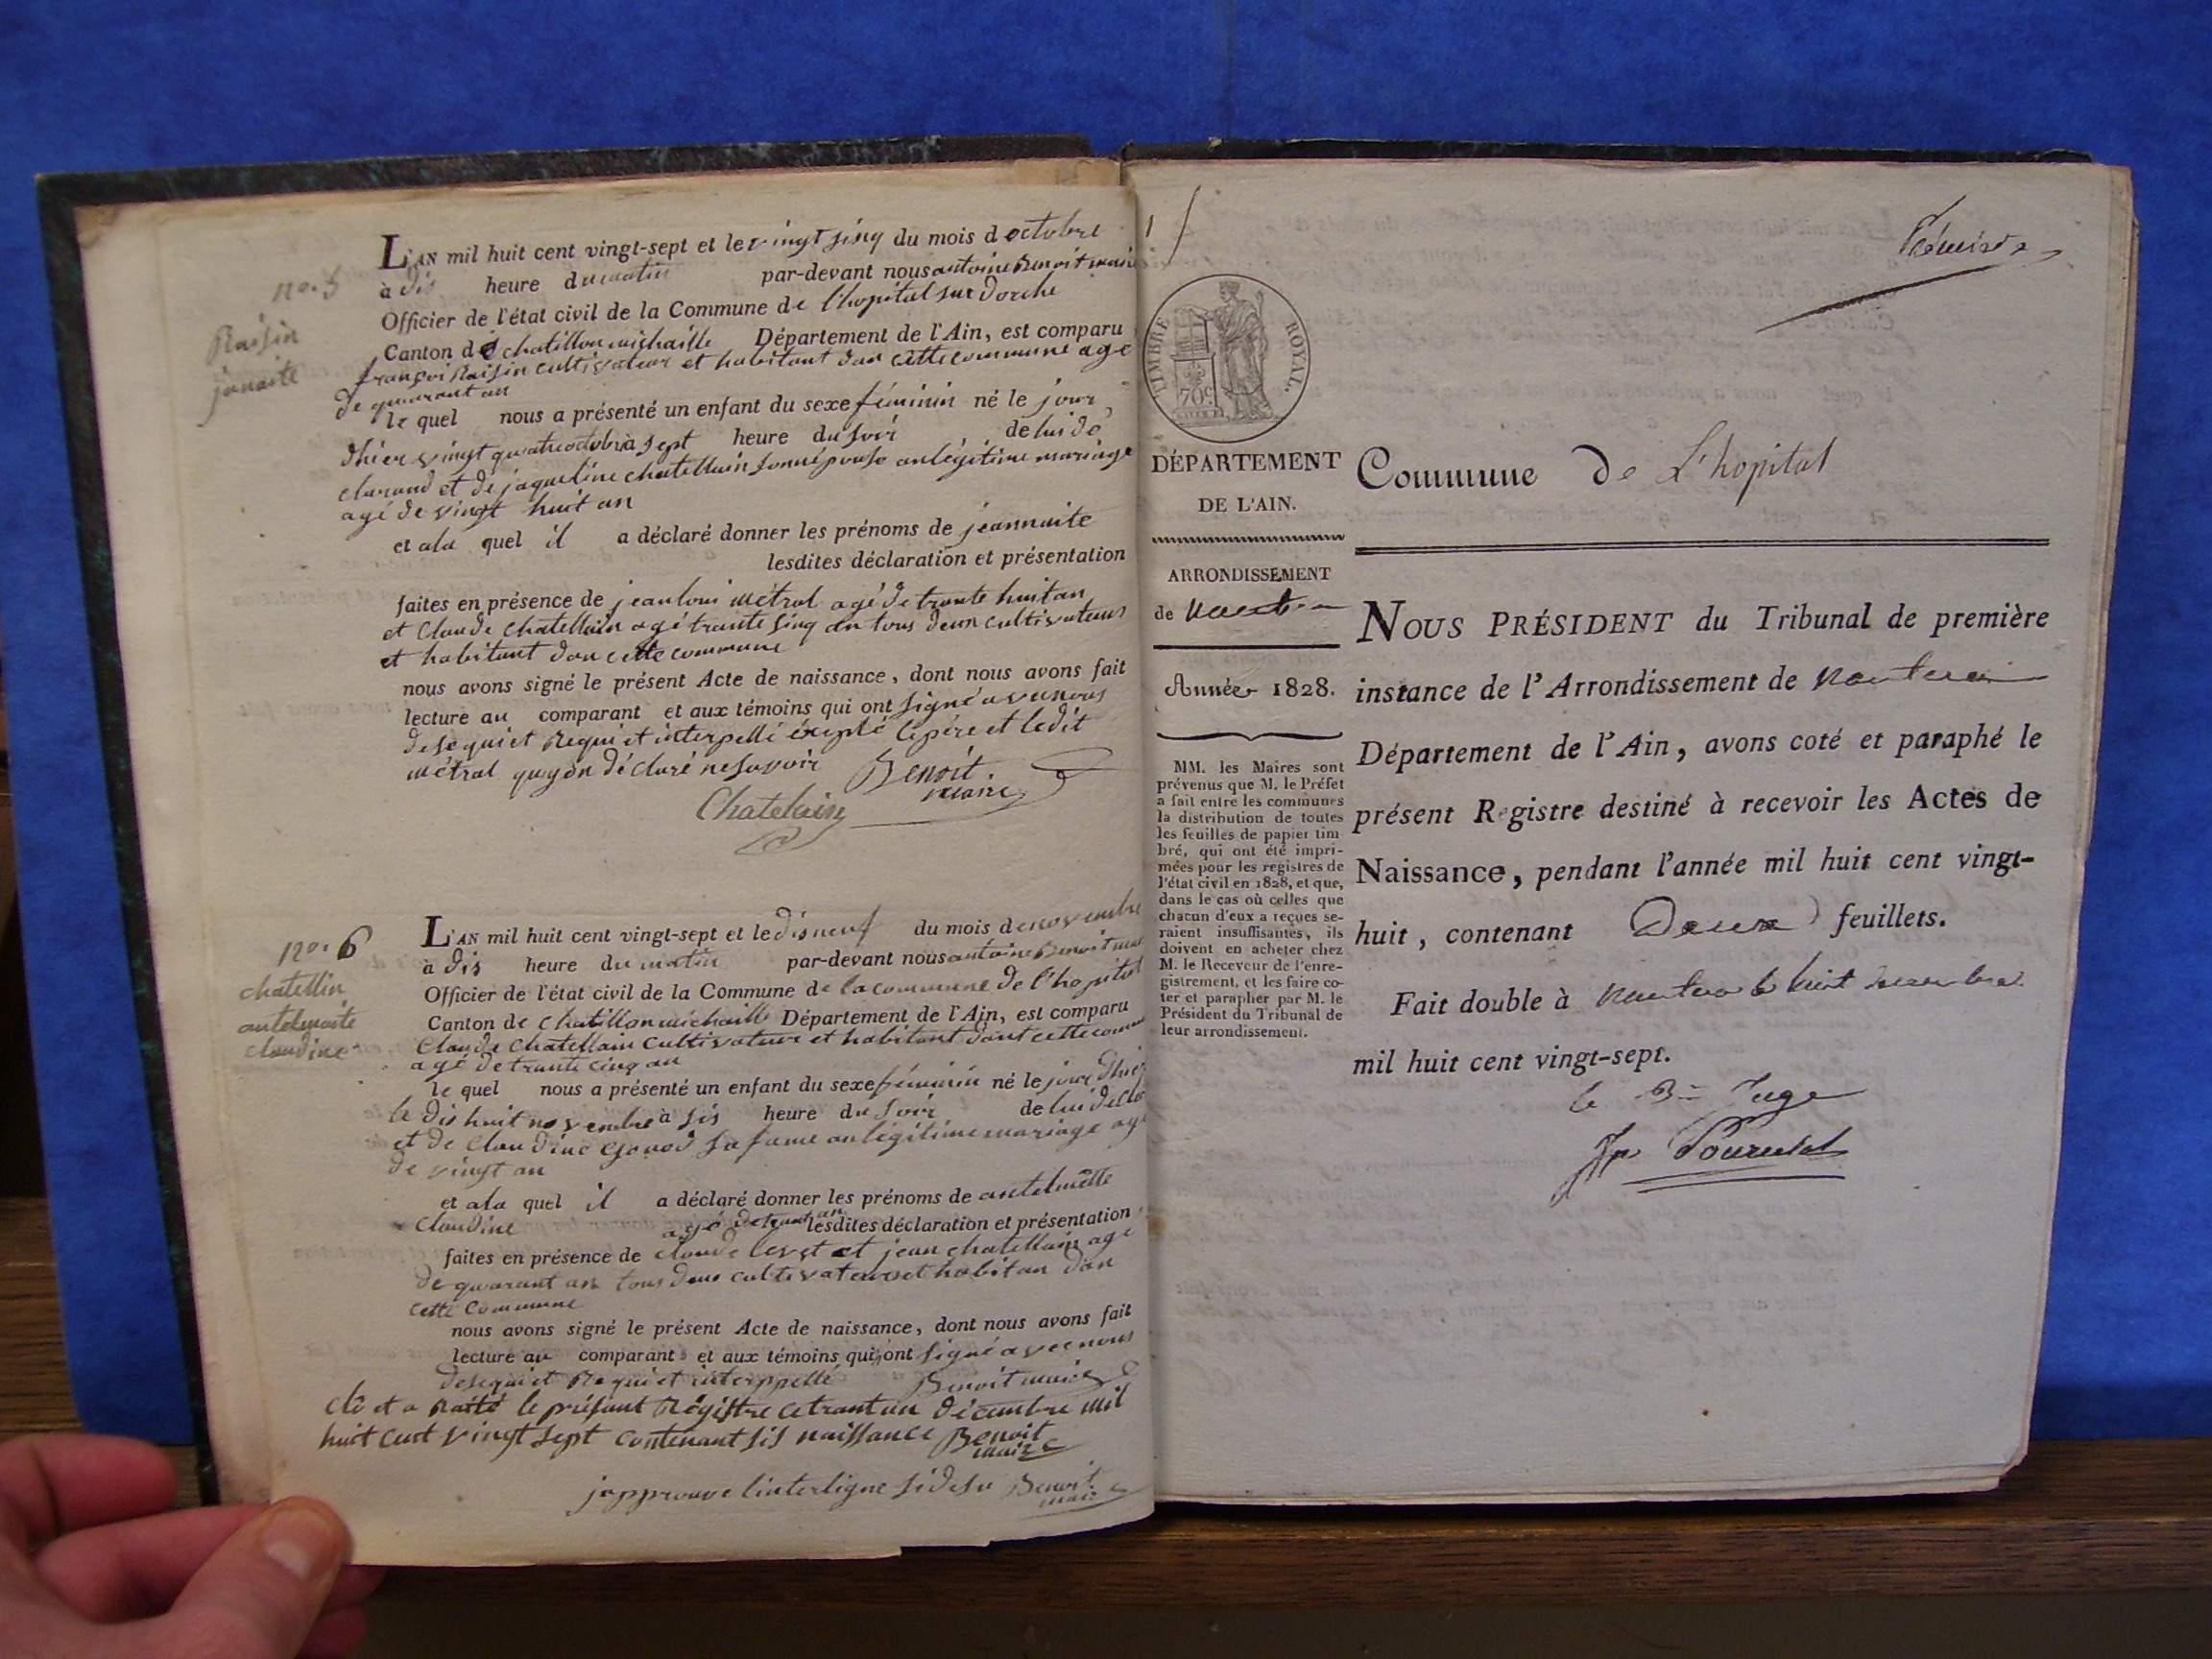 no. 5
Raisin
janaite
L'AN mil huit cent vingt-sept et le vingt sinq du mois d octobre
à dis heure du matin par-devant nous antoine Benoit maire
Officier de l'état civil de la Commune de l'hopital sur dorche
Canton de chatillon michaille Département de l'Ain, est comparu
françoi Raisin cultivateur et habitant dan cette commune age
de quarant an
le quel nous a présenté un enfant du sexe féminin né le jour
dhier vingt quatre octobre à sept heure du soir de lui dé
clarand et de jaqueline chatellain sonn épouse an légitime mariage
agé de vingt huit an
et ala quel il a déclaré donner les prénoms de jeannaite
lesdites déclaration et présentation
faites en présence de jean loui métral agé de trante huit an
et Claude Chatellain agé trante sinq an tous deux cultivateurs
et habitant dan cette commune
nous avons signé le présent Acte de naissance, dont nous avons fait
lecture au comparant et aux témoins qui ont signé avec nous
de se qui et Requi et interpellé éxepté le père et ledit
métral qui on déclaré ne savoir Benoit
maire
Chatelain
no. 6
chatellin
antelmaite
claudine
L'AN mil huit cent vingt-sept et le dis neuf du mois de novembre
à dis heure du matin par-devant nous antoine Benoit mai
Officier de l'état civil de la Commune de la commune de l'hopital
Canton de Chatillon michaille Département de l'Ain, est comparu
Claude Chatellain cultivateur et habitant dans cette comm
agé de trante cinq an
le quel nous a présenté un enfant du sexe féminin né le jour dhier
le dis huit novembre à sis heure du soir de lui de clo
et de Claudine sa fame an légitime mariage agé
de vingt an
et ala quel il a déclaré donner les prénoms de antelmette
Claudine agé de trant an lesdites déclaration et présentation
faites en présence de claude et jean chatellain agé
de quarant an tous deux cultivateurs et habitan dan
cette Commune
nous avons signé le présent Acte de naissance, dont nous avons fait
lecture au comparant et aux témoins qui ont signé avec nous
de se qui et Requi et interppellé Benoit maire
clô et a Raité le présant Régistre ce trant un décembre mil
huit cent vingt sept contenant sis naissance Benoit
maire
japprouve linterligne si desu Benoit
maire
1
TIMBRE ROYAL.
70c
DÉPARTEMENT
DE L'AIN.
ARRONDISSEMENT
de Nantua
Année 1828.
MM. les Maires sont
prévenus que M. le Préfet
a fait entre les communes
la distribution de toutes
les feuilles de papier tim-
bré, qui ont été impri-
mées pour les registres de
l'état civil en 1828, et que,
dans le cas où celles que
chacun d'eux a reçues se-
raient insuffisantes, ils
doivent en acheter chez
M. le Receveur de l'enre-
gistrement, et les faire co-
ter et parapher par M. le
Président du Tribunal de
leur arrondissement.
Commune de L'hopital
NOUS PRÉSIDENT du Tribunal de première
instance de l'Arrondissement de Nantua
Département de l'Ain, avons coté et paraphé le
présent Registre destiné à recevoir les Actes de
Naissance, pendant l'année mil huit cent vingt-
huit, contenant Deux feuillets.
Fait double à Nantua le huit decembre
mil huit cent vingt-sept.
le Juge